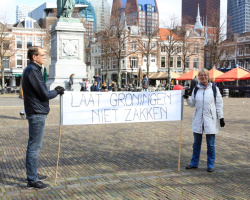 LAAT GRONINGEN
NIET ZAKKEN